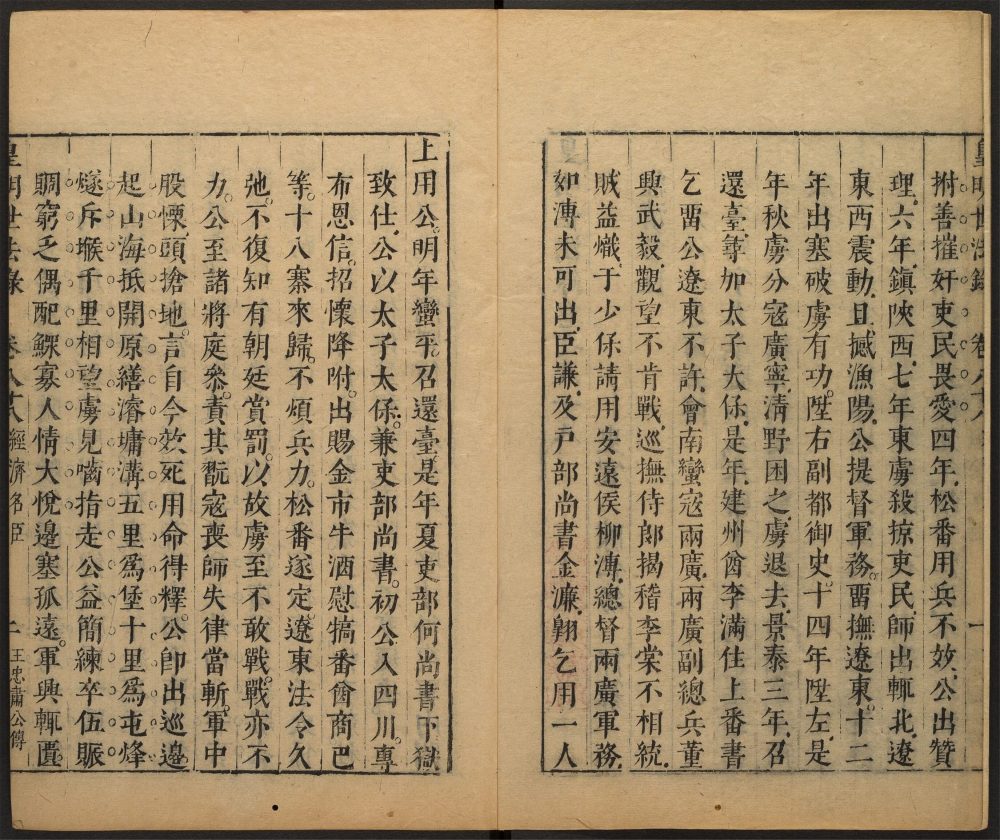 皇明世法錄 卷八十八 一
拊善摧奸吏民畏愛四年松番用兵不效公出贊
理六年鎮陝西七年東虜殺掠吏民師出輒北遼
東西震動且撼漁陽公提督軍務畱撫遼東十二
年出塞破虜有功陞右副都御史十四年陞左是
年秋虜分寇廣寧清野困之虜退去景泰三年召
還臺尋加太子太保是年建州酋李滿住上番書
乞畱公遼東不許會南蠻寇兩廣兩廣副總兵董
興武毅觀望不肯戰巡撫侍郎揭稽李棠不相統
賊益熾于少保請用安遠侯柳溥總督兩廣軍務
如溥未可出臣謙及戶部尚書金濂翱乞用一人
上用公明年蠻平召還臺是年夏吏部何尚書下獄
致仕公以太子太保兼吏部尚書初公入四川專
布恩信招懷降附出賜金市牛酒慰犒番酋商巴
等十八寨來歸不煩兵力松番遂定遼東法令久
弛不復知有朝廷賞罰以故虜至不敢戰戰亦不
力公至諸將庭參責其翫寇喪師失律當斬軍中
股慄頭搶地言自今效死用命得釋公卽出巡邊
起山海抵開原繕濬墉溝五里爲堡十里爲屯烽
燧斥堠千里相望虜見嚙指走公益簡練卒伍賑
賙窮乏偶配鰥寡人情大悅邊塞孤遠軍興輒匱
皇明世法錄 卷八十八 經濟名臣 二 王忠肅公傳